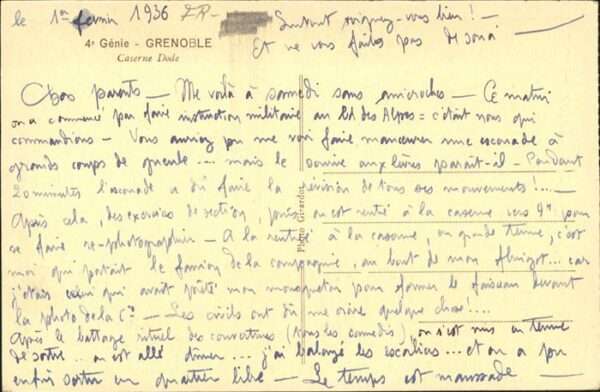 le 1er février 1936
Surtout soignez-vous bien ! —
Et ne vous faites pas de souci —
4e Génie - GRENOBLE
Caserne Dode
Chers parents — Me voilà à samedi sans anicroches — Ce matin
on a commencé par faire instruction militaire au Bd des Alpes = c'était nous qui
commandions — Vous auriez pu me voir faire manœuvrer une escouade à
grands coups de gueule .... mais le sourire aux lèvres paraît-il — Pendant
20 minutes l'escouade a dû faire la révision de tous ses mouvements !... —
Après cela, des exercices de section, puis on est rentré à la caserne vers 9h pour
se faire re-photographier — A la rentrée à la caserne, en grande tenue, c'est
moi qui portait le fanion de la compagnie, au bout de mon flingot... car
j'étais celui qui avait prêté mon mousqueton pour former le faisceau devant
la photo de la Cie — Les civils ont dû me croire quelque chose !....
Après le battage rituel des couvertures (tous les samedis), on s'est mis en tenue
de sortie .. on est allé dîner ... j'ai balayé les escaliers ... et on a pu
enfin sortir en quartier libre — Le temps est maussade —
Photo Girardin